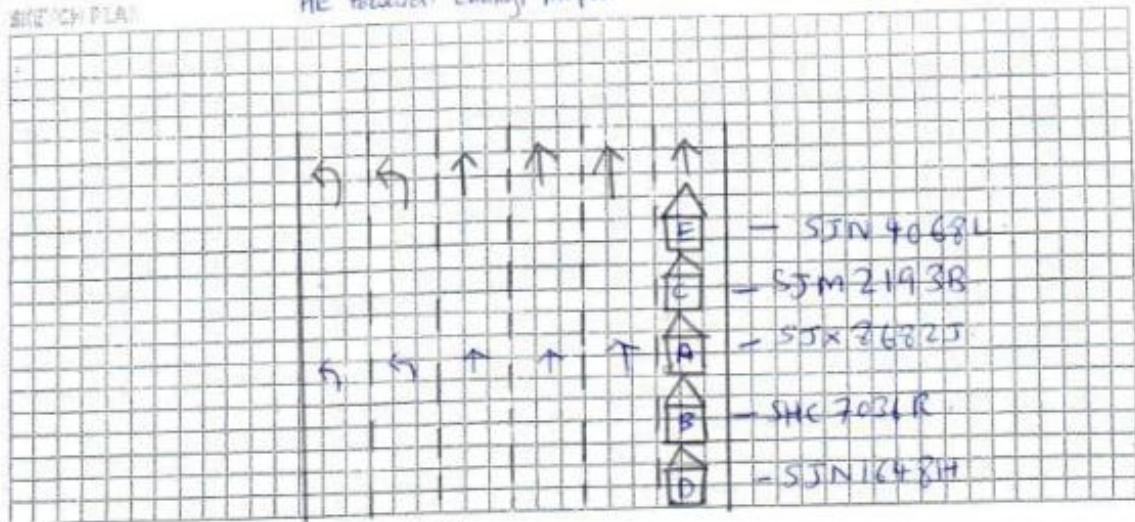 SKETCH PLAN
E - SJN 4068L
C - SJM 2193B
A - SJX 8682J
B - SHC 7036R
D - SJN1648H